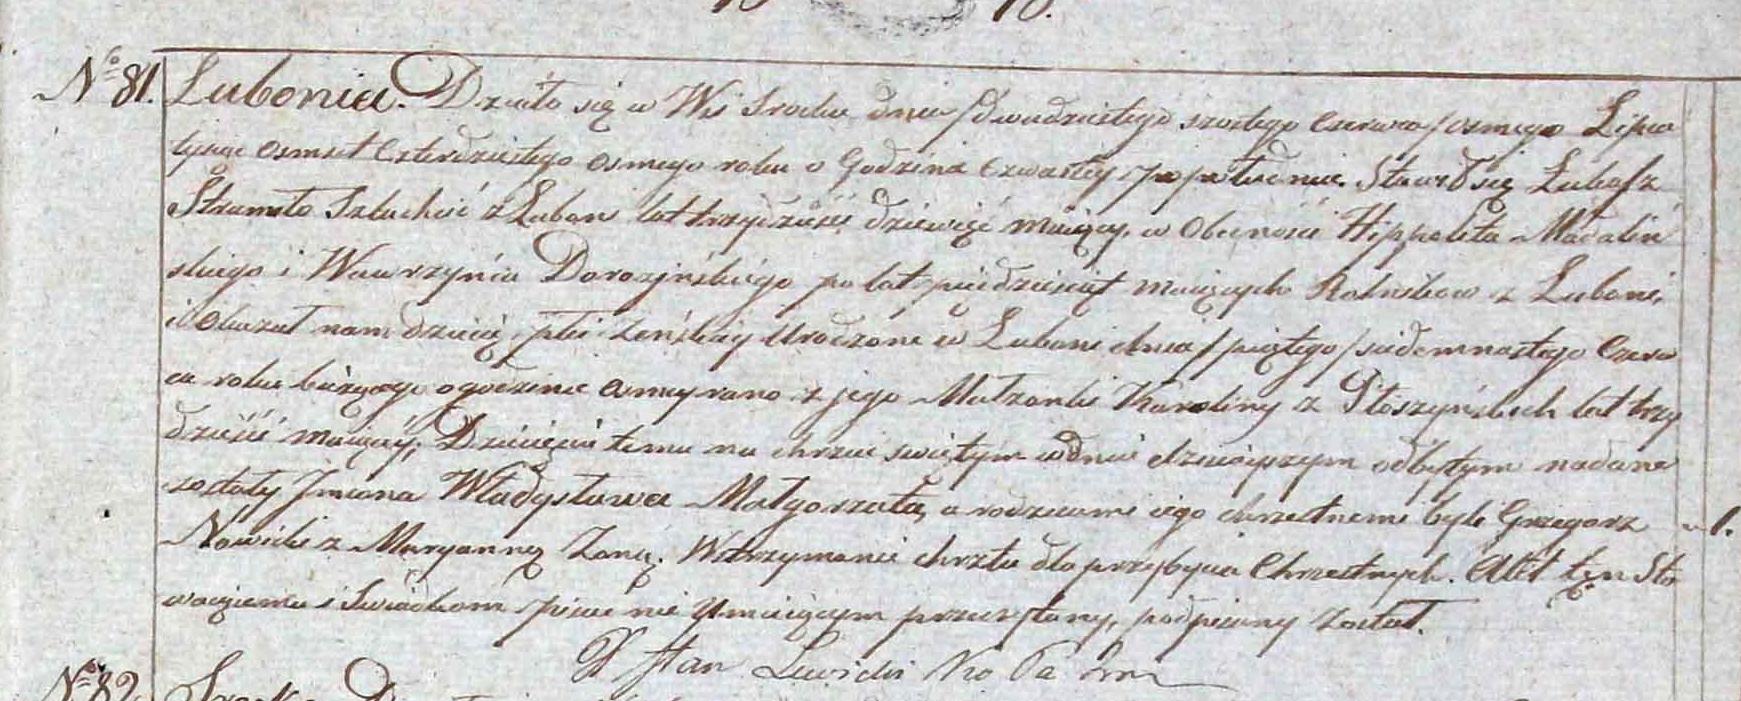 No 81. Lubonia. Działo się w Wsi Srocku dnia /dwudziestego szostego Czerwca/ osmego Lipca
tysiąc osmset Czterdziestego osmego roku o Godzinie Czwartej popołudniu. Stawił się Łukasz
Szlachcic z Luboni lat trzydzieści dziewięć maiący, w Obecności Hippolita Madaliń
skiego i Wawrzyńca Dorozyńskiego po lat pięcdziesiąt maiących Rolnikow z Luboni,
i Okazał nam dziecię płci żeńskiey urodzone w Luboni dnia /piątego/ siedemnastego Czerw
ca roku bieżącego o godzinie osmey rano z jego Małżonki Karoliny z Płoszyńskich lat trzy
dzieści maiącey; Dziecięciu temu na chrzcie swiętym w dniu dzisieyszym odbytym nadane
zostały Jmiona Władysława Małgorzata, a rodzicami iego chrzestnemi byli Grzegorz
Nowicki z Maryanną Żoną. Wstrzymanie chrztu dla przybycia Chrzestnych. Akt ten Sta
waiącemu i Swiadkom pisac nie Umieiącym przeczytany, podpisany został.
X Stan Lewicki
No 82